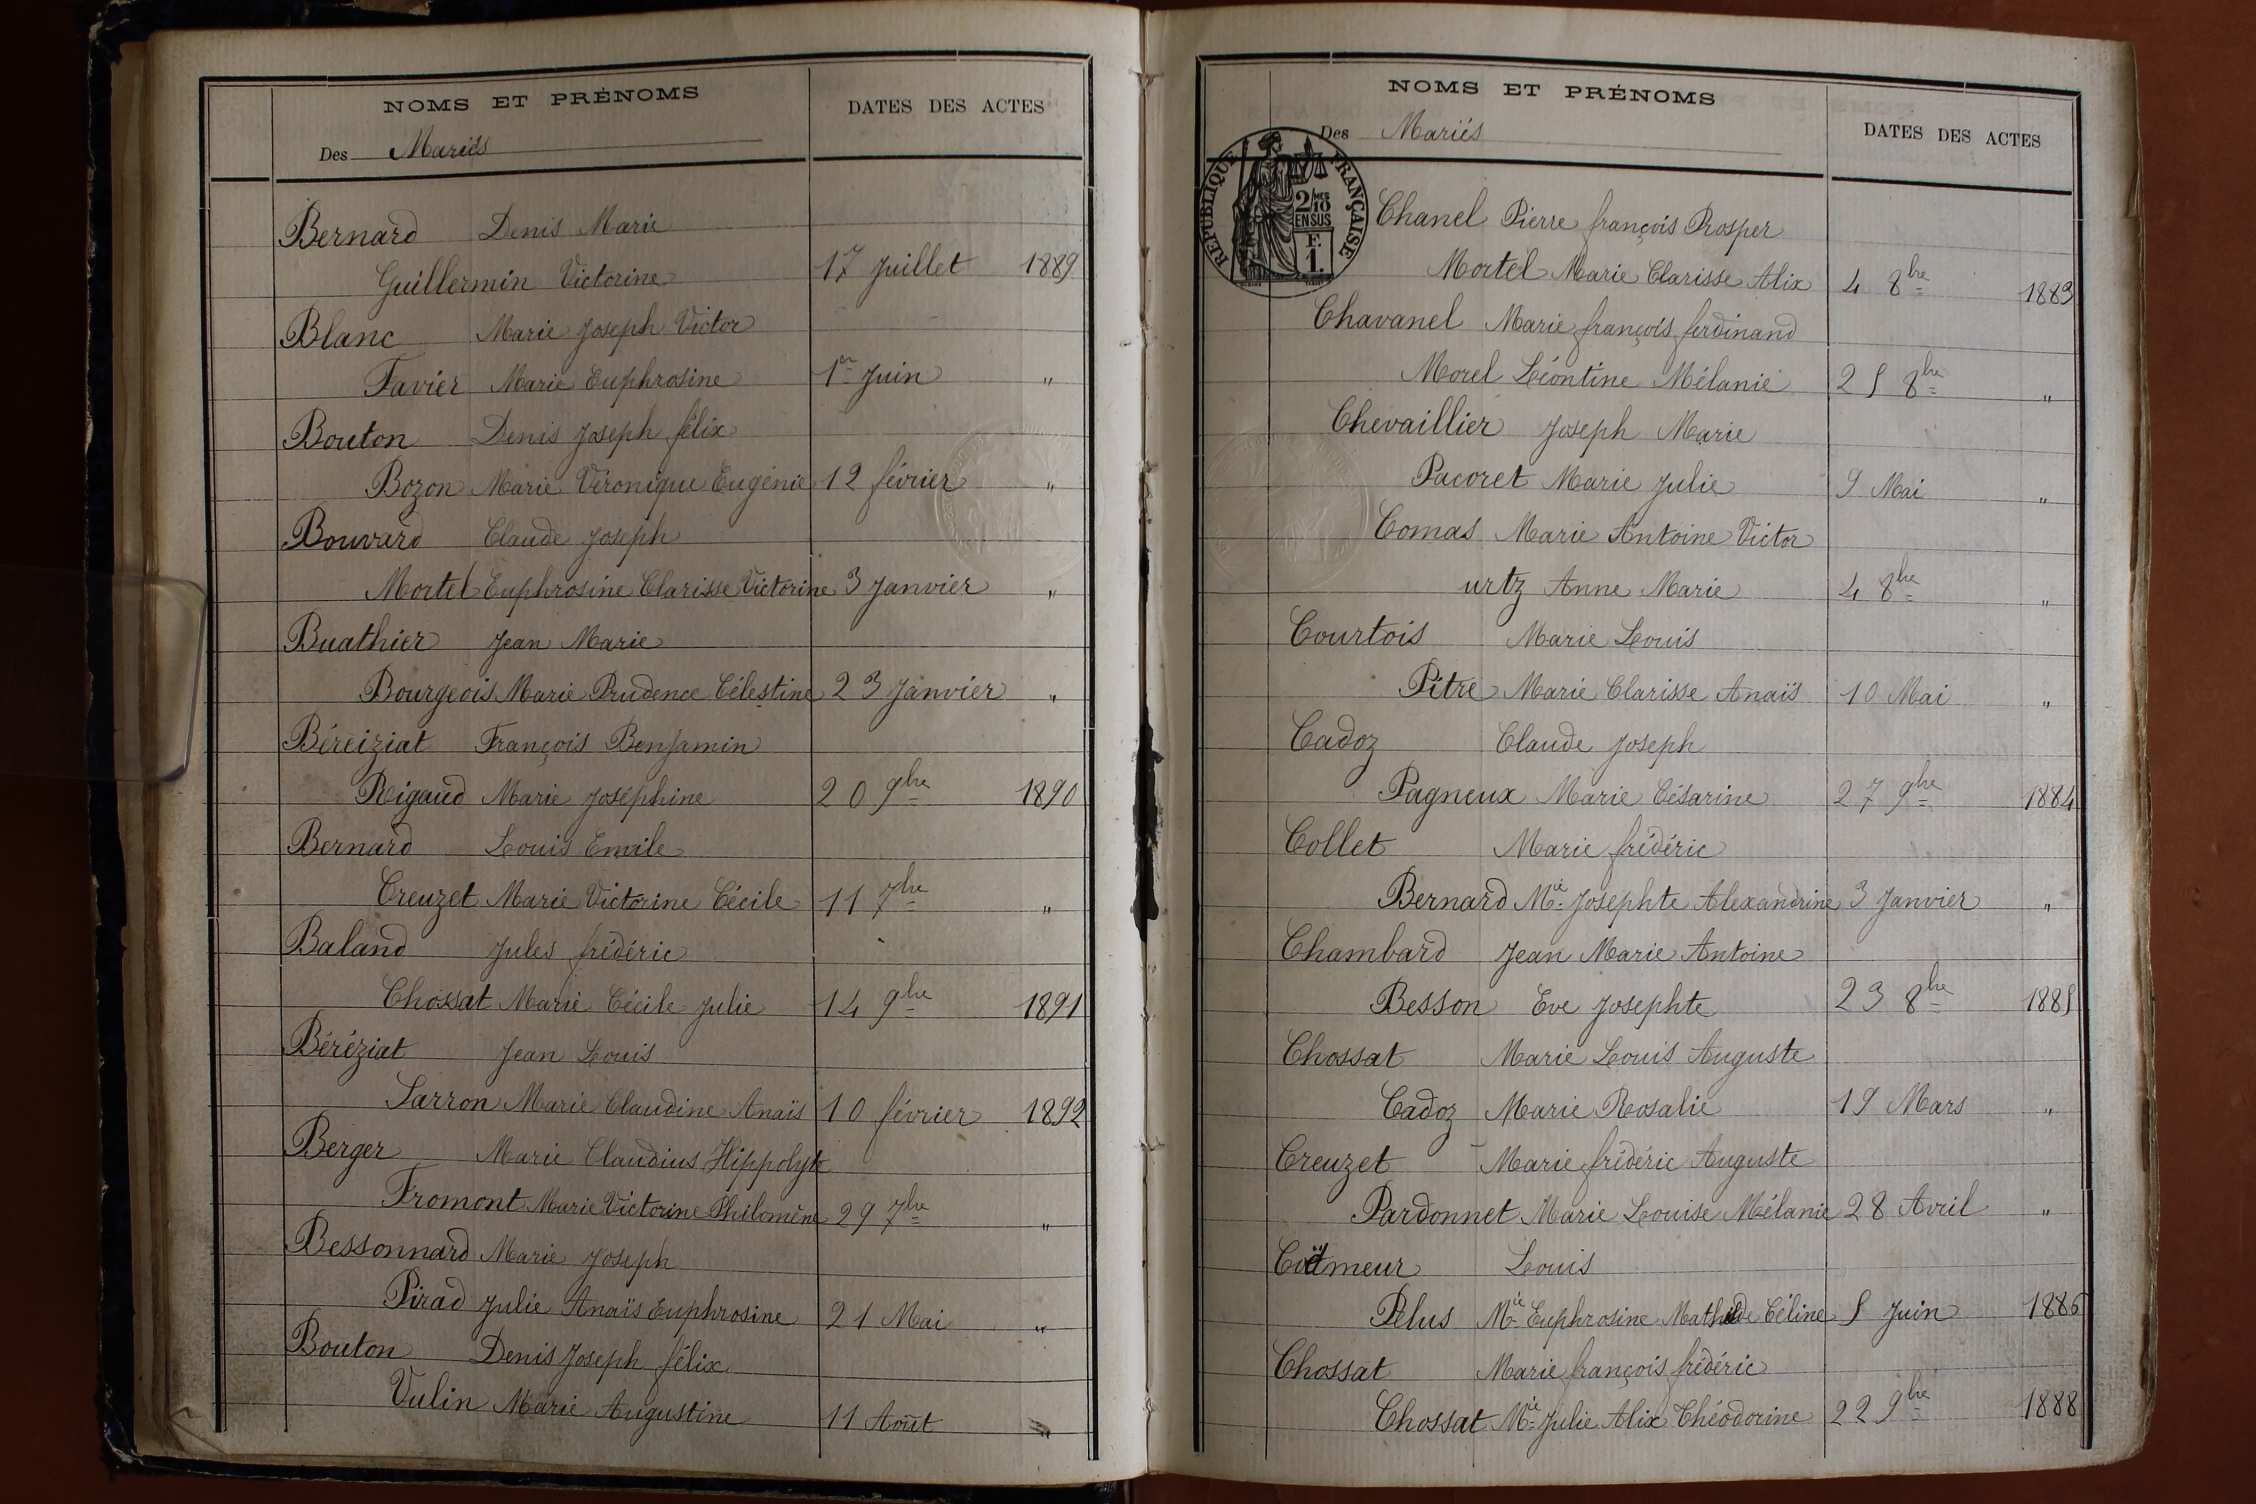 NOMS ET PRÉNOMS DATES DES ACTES
Des Mariés
Bernard Denis Marie
Guillermin Victorine 17 Juillet 1889
Blanc Marie Joseph Victor
Favier Marie Euphrosine 1er Juin "
Bouton Denis Joseph félix
Bozon Marie Véronique Eugénie 12 février "
Bouvard Claude Joseph
Mortel Euphrosine Clarisse Victorine 3 Janvier "
Buathier Jean Marie
Bourgeois Marie Prudence Célestine 23 Janvier "
Béréiziat François Benjamin
Rigaud Marie Joséphine 20 9bre 1890
Bernard Louis Emile
Creuzet Marie Victorine Cécile 11 7bre "
Baland Jules frédéric
Chossat Marie Cécile Julie 14 9bre 1891
Béréziat Jean Louis
Sarron Marie Claudine Anaïs 10 février 1892
Berger Marie Claudius Hippolyte
Fromont Marie Victorine Philomène 29 7bre "
Bessonnard Marie Joseph
Pirad Julie Anaïs Euphrosine 21 Mai "
Bouton Denis Joseph félix
Vulin Marie Augustine 11 Août "
NOMS ET PRÉNOMS DATES DES ACTES
Des Mariés
RÉPUBLIQUE FRANÇAISE
2/10 EN SUS
F. 1.
Chanel Pierre françois Prosper
Mortel Marie Clarisse Alix 4 8bre 1883
Chavanel Marie françois ferdinand
Morel Léontine Mélanie 25 8bre "
Chevaillier Joseph Marie
Pacoret Marie Julie 9 Mai "
Comas Marie Antoine Victor
urtz Anne Marie 4 8bre "
Courtois Marie Louis
Pitre Marie Clarisse Anaïs 10 Mai "
Cadoz Claude Joseph
Pagneux Marie Césarine 27 9bre 1884
Collet Marie frédéric
Bernard Mie Josephte Alexandrine 3 Janvier "
Chambard Jean Marie Antoine
Besson Eve Josephte 23 8bre 1885
Chossat Marie Louis Auguste
Cadoz Marie Rosalie 19 Mars "
Creuzet Marie frédéric Auguste
Pardonnet Marie Louise Mélanie 28 Avril "
Louis
Pelus Mie Euphrosine Mathilde Céline 5 Juin 1886
Chossat Marie françois frédéric
Chossat Mie Julie Alix Théodorine 22 9bre 1888